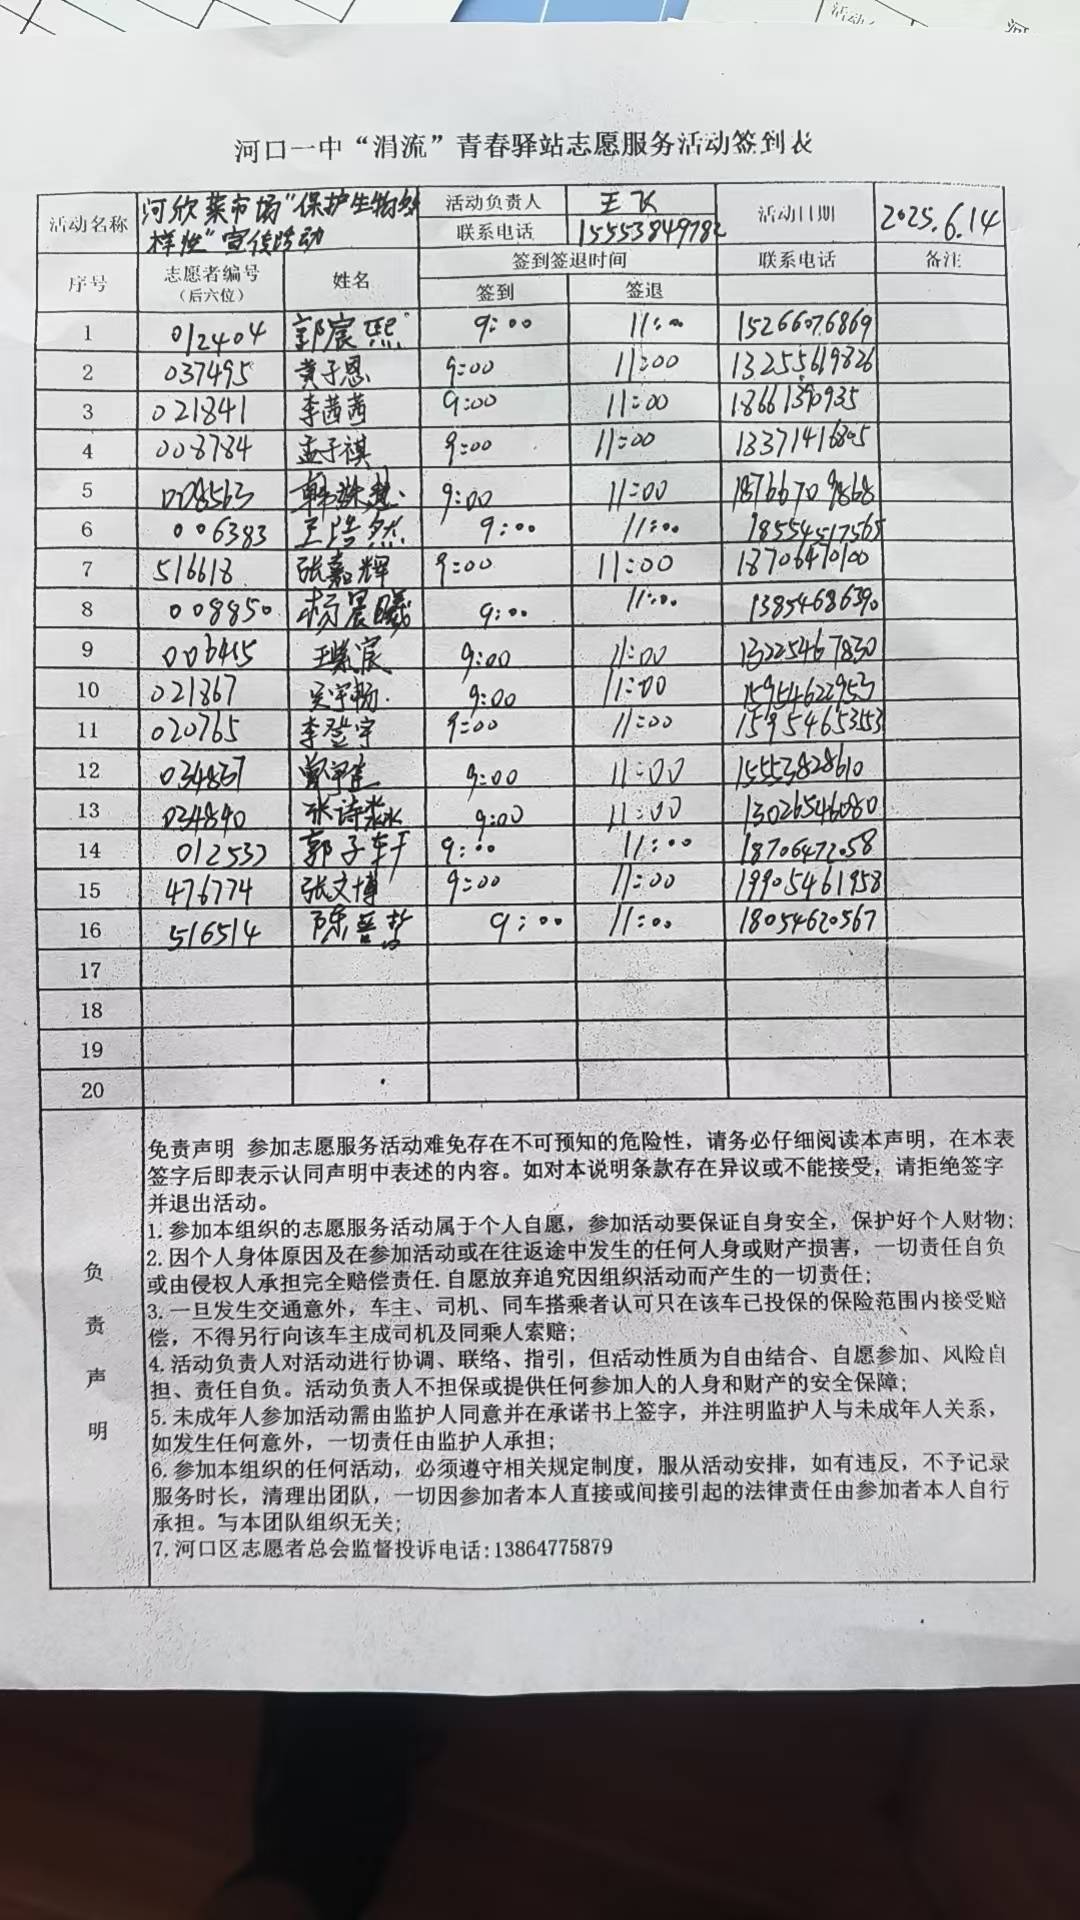 河口一中“涓流”青春驿站志愿服务活动签到表
活动名称 河欣菜市场“保护生物多样性”宣传活动 活动负责人 王飞 活动日期 2025.6.14
联系电话 15553849782
序号 志愿者编号（后六位） 姓名 签到签退时间 联系电话 备注
签到 签退
1 012404 郭宸熙 9:00 11:00 15266076869
2 037495 黄子恩 9:00 11:00 13255619826
3 021841 李茜茜 9:00 11:00 18661390935
4 008784 孟子祺 9:00 11:00 13371416805
5 008563 9:00 11:00 18766709868
6 006383 王浩然 9:00 11:00 18554517565
7 516618 张嘉辉 9:00 11:00 18706470100
8 008850 杨晨曦 9:00 11:00 13854686390
9 006415 9:00 11:00 13225467830
10 021867 9:00 11:00 15954622953
11 020765 李登宇 9:00 11:00 15954653553
12 034867 9:00 11:00 15553828610
13 034840 张诗淼 9:00 11:00 13026546080
14 012532 郭子轩 9:00 11:00 18706472058
15 476774 张文博 9:00 11:00 19905461958
16 516514 陈晋哲 9:00 11:00 18054620567
17
18
19
20
负责声明
免责声明 参加志愿服务活动难免存在不可预知的危险性，请务必仔细阅读本声明，在本表
签字后即表示认同声明中表述的内容。如对本说明条款存在异议或不能接受，请拒绝签字
并退出活动。
1. 参加本组织的志愿服务活动属于个人自愿，参加活动要保证自身安全，保护好个人财物；
2. 因个人身体原因及在参加活动或在往返途中发生的任何人身或财产损害，一切责任自负
或由侵权人承担完全赔偿责任. 自愿放弃追究因组织活动而产生的一切责任；
3. 一旦发生交通意外，车主、司机、同车搭乘者认可只在该车已投保的保险范围内接受赔
偿，不得另行向该车主成司机及同乘人索赔；
4. 活动负责人对活动进行协调、联络、指引，但活动性质为自由结合、自愿参加、风险自
担、责任自负。活动负责人不担保或提供任何参加人的人身和财产的安全保障；
5. 未成年人参加活动需由监护人同意并在承诺书上签字，并注明监护人与未成年人关系，
如发生任何意外，一切责任由监护人承担；
6. 参加本组织的任何活动，必须遵守相关规定制度，服从活动安排，如有违反，不予记录
服务时长，清理出团队，一切因参加者本人直接或间接引起的法律责任由参加者本人自行
承担。与本团队组织无关；
7. 河口区志愿者总会监督投诉电话:13864775879